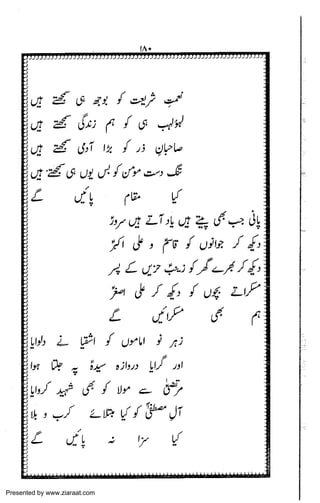 ۱۸۰
نعمتِ شریعت کو بوجھ ہی سمجھتے ہیں
لہو لہب ہی کو ہم زندگی سمجھتے ہیں
صاحبانِ زر کو بڑا آدمی سمجھتے ہیں
تنگ دست مومن کو بس یوں ہی سمجھتے ہیں
کیا مقام پائیں گے
پانی جب بھی پیتے ہیں یاد آتے ہیں سرورؑ
دیکھ کر جوانوں کو قاسمؑ و علی اکبرؑ
دیکھ کر بھرے گھر کو زینبؑ حزیں کے پسر
مسکراتے بچوں کو دیکھ کر علی اصغرؑ
ہم بھی مسکرائیں گے
زہر نو اماموں کو اشقیا نے دلوایا
اور گرایا دروازہ سیدہؑ پہ جلتا ہوا
مرتضیٰؑ سے مولا کو بھی شہید کروایا
آلِ مصطفیٰؐ کو کیا مبتلائے کرب و بلا
کیا سزا نہ پائیں گے
Presented by www.ziaraat.com